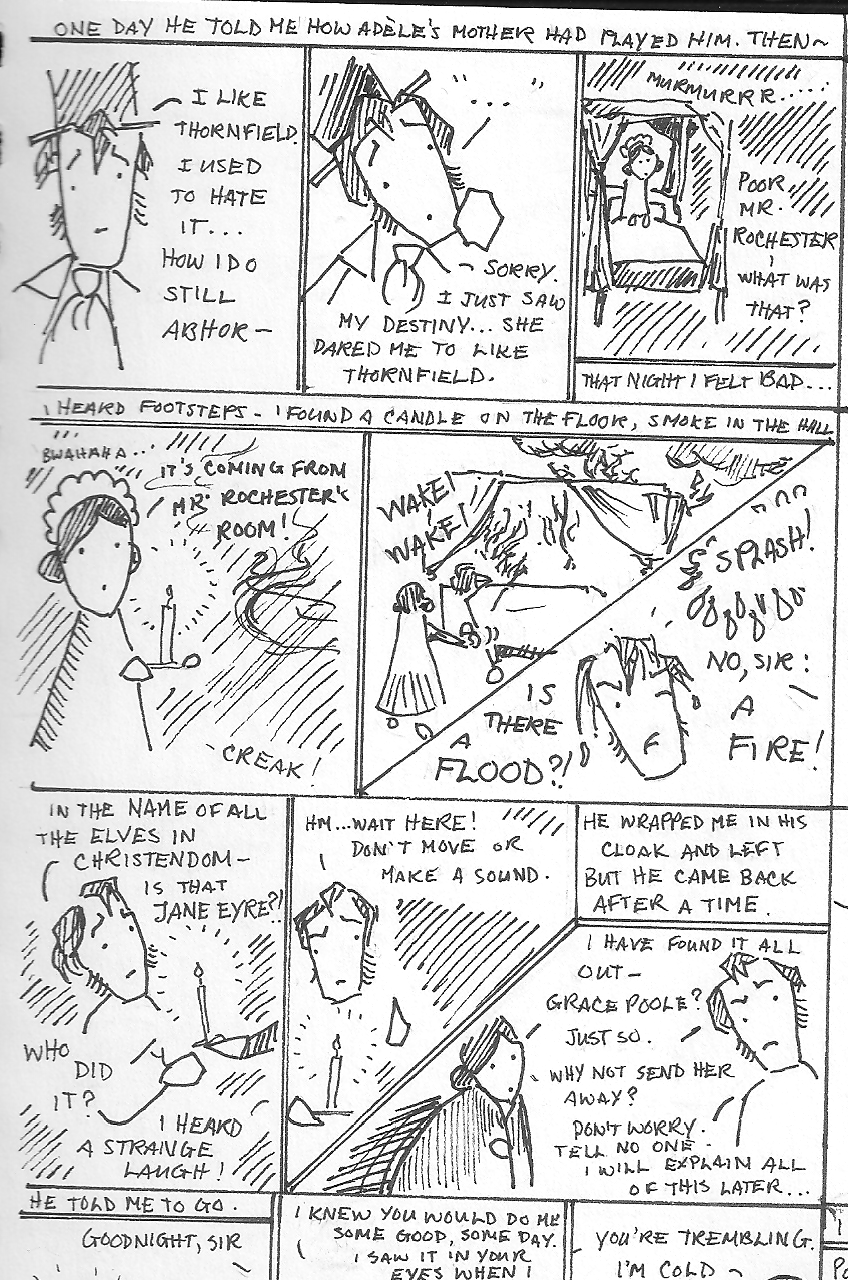 ONE DAY HE TOLD ME HOW ADÈLE'S MOTHER HAD PLAYED HIM. THEN~
I LIKE
THORNFIELD.
I USED
TO HATE
IT...
HOW I DO
STILL
ABHOR -
SORRY.
I JUST SAW
MY DESTINY... SHE
DARED ME TO LIKE
THORNFIELD.
MURMURRR.....
POOR
MR.
ROCHESTER
WHAT WAS
THAT?
THAT NIGHT I FELT BAD...
I HEARD FOOTSTEPS - I FOUND A CANDLE ON THE FLOOR, SMOKE IN THE HALL
BWAHAHA...
IT'S COMING FROM
MR. ROCHESTER'S
ROOM!
CREAK!
WAKE!
WAKE!
SPLASH!
IS
THERE
A
FLOOD?!
NO, SIR:
A
FIRE!
IN THE NAME OF ALL
THE ELVES IN
CHRISTENDOM-
IS THAT
JANE EYRE?!
WHO
DID
IT?
I HEARD
A STRANGE
LAUGH!
HM...WAIT HERE!
DON'T MOVE OR
MAKE A SOUND.
HE WRAPPED ME IN HIS
CLOAK AND LEFT
BUT HE CAME BACK
AFTER A TIME.
I HAVE FOUND IT ALL
OUT-
GRACE POOLE?
JUST SO.
WHY NOT SEND HER
AWAY?
DON'T WORRY.
TELL NO ONE -
I WILL EXPLAIN ALL
OF THIS LATER...
HE TOLD ME TO GO.
GOODNIGHT, SIR
I KNEW YOU WOULD DO ME
SOME GOOD, SOME DAY.
I SAW IT IN YOUR
EYES WHEN I
YOU'RE TREMBLING.
I'M COLD ~